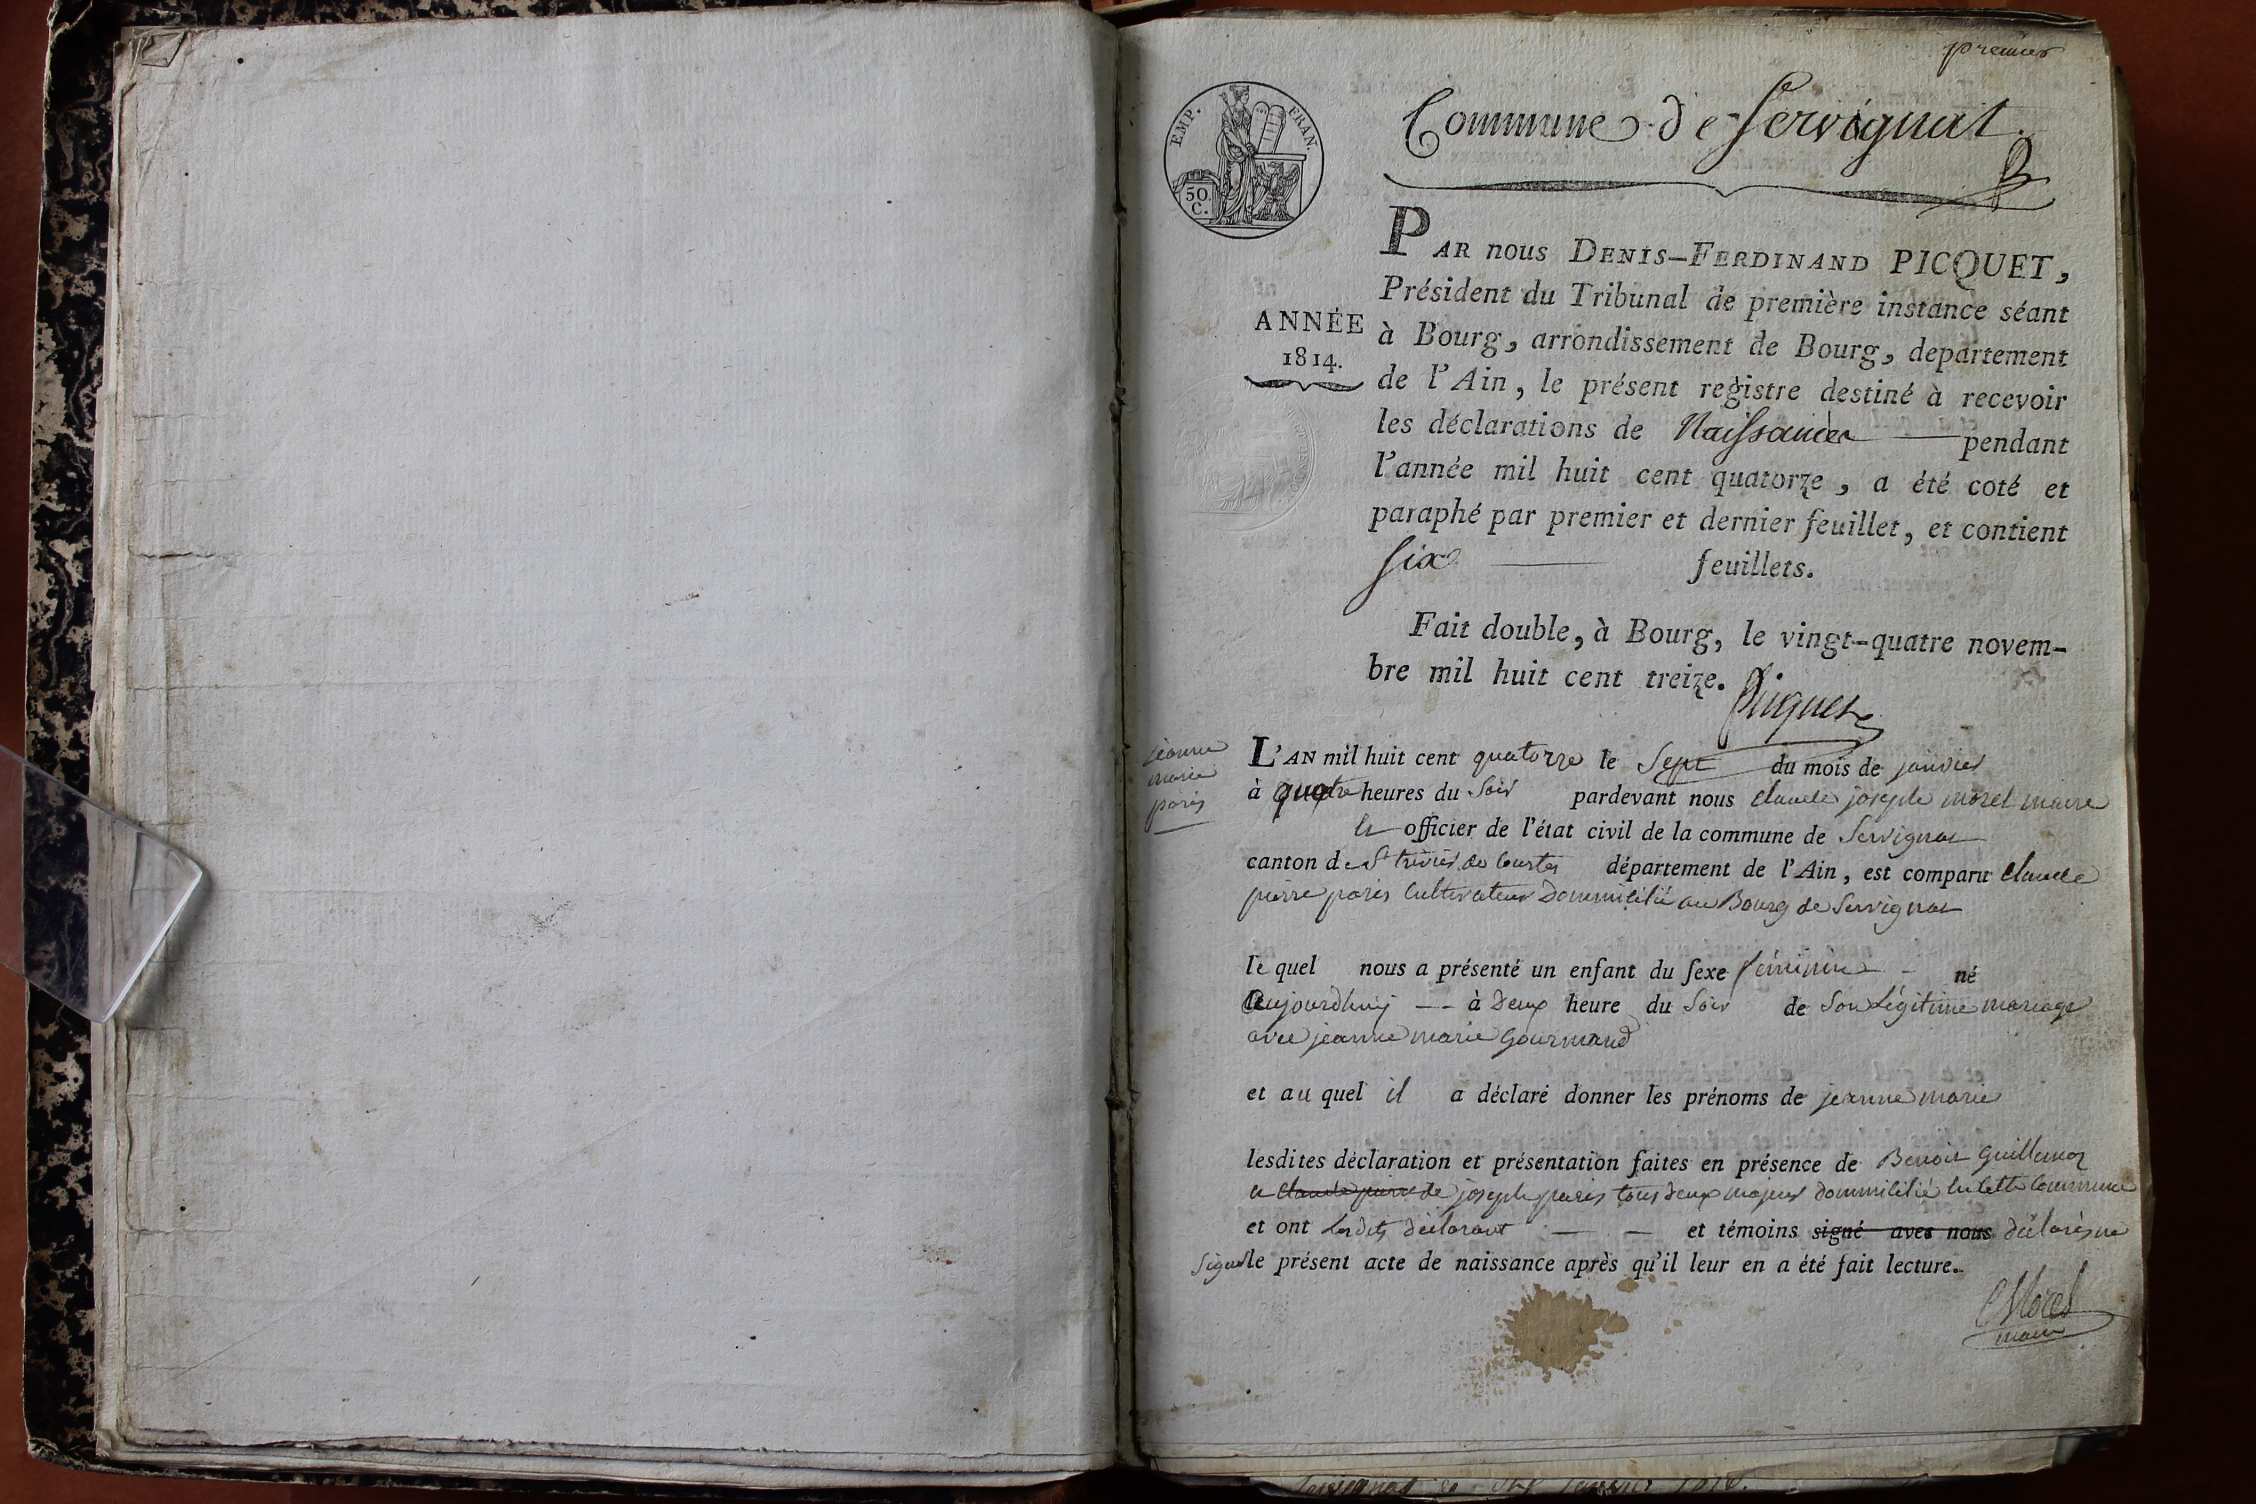 premier
EMP. FRAN.
50
C.
Commune de Servignat.
PAR nous DENIS-FERDINAND PICQUET,
Président du Tribunal de première instance séant
ANNÉE
1814.
à Bourg, arrondissement de Bourg, departement
de l'Ain, le présent registre destiné à recevoir
les déclarations de Naissances pendant
l'année mil huit cent quatorze, a été coté et
paraphé par premier et dernier feuillet, et contient
six feuillets.
Fait double, à Bourg, le vingt-quatre novem-
bre mil huit cent treize.
Picquet
jeanne
marie
paris
L'AN mil huit cent quatorze le Sept du mois de janvier
à quatre heures du Soir pardevant nous claude joseph morel maire
et officier de l'état civil de la commune de Servignat
canton de St trivier de Courtes département de l'Ain, est comparu claude
pierre paris Cultivateur Dommicilié au Bourg de Servignat
le quel nous a présenté un enfant du sexe féminin né
aujourdhuj à deux heure du Soir de Son Légitime mariage
avec jeanne marie gourmand
et au quel il a déclaré donner les prénoms de jeanne marie
lesdites déclaration et présentation faites en présence de Benoit Guillemot
et claude pierre de joseph paris tous deux majeur dommicilié en Cette Commune
et ont Lesdits déclarant et témoins signé avec nous déclaré ne
Signer le présent acte de naissance après qu'il leur en a été fait lecture.
C Morel
maire